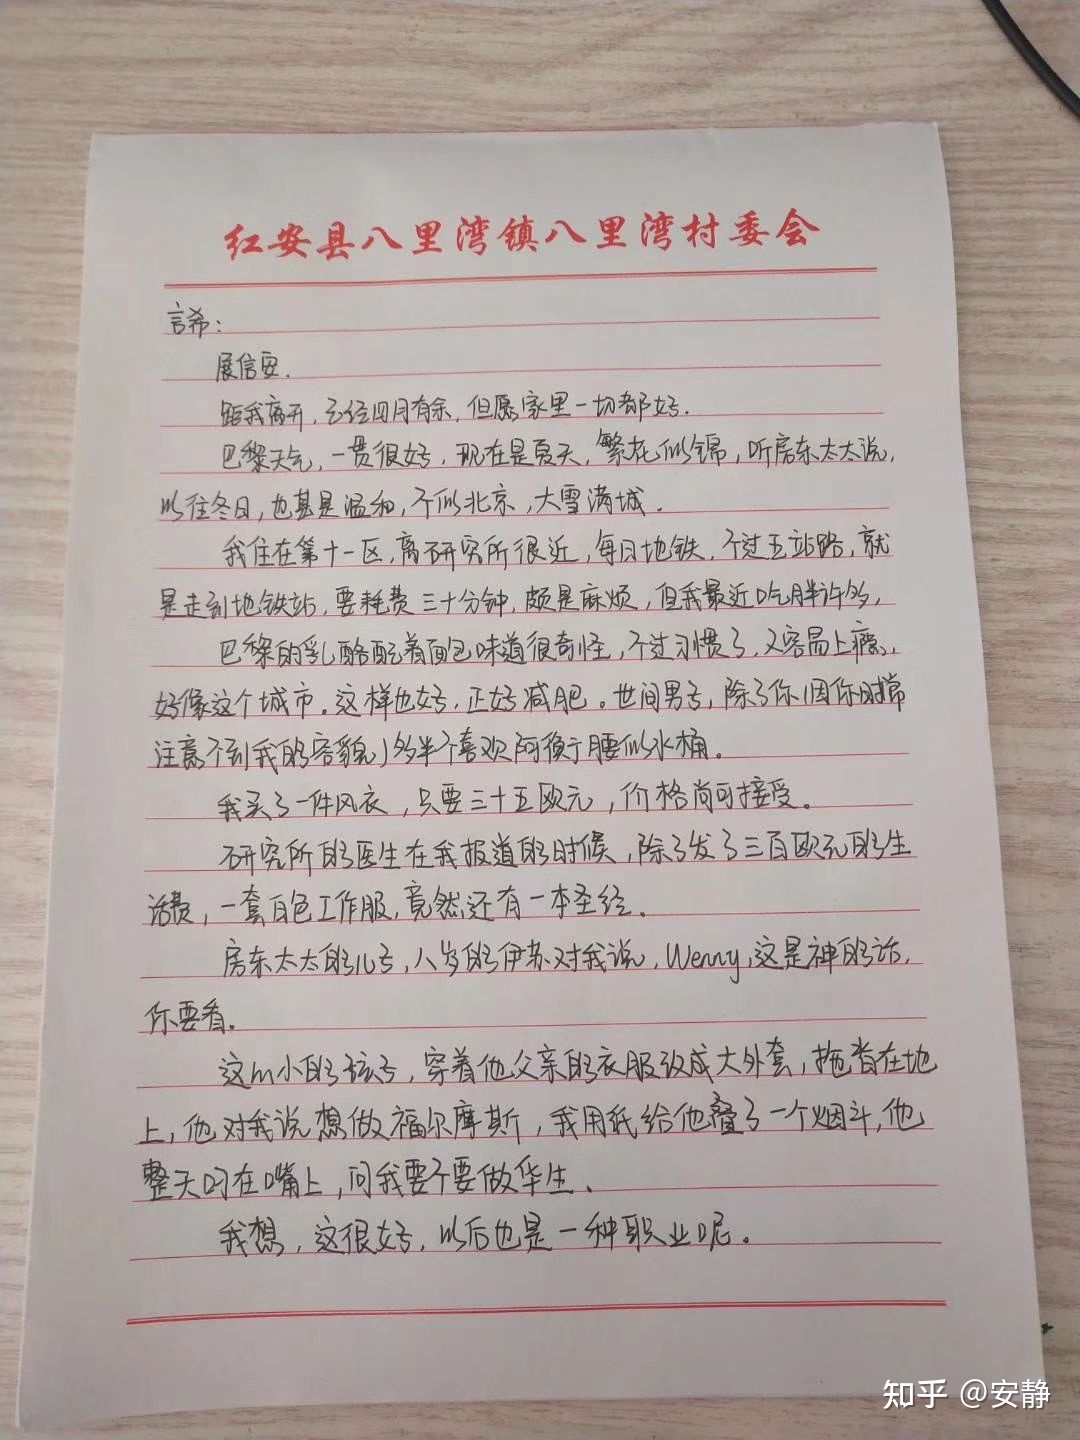 红安县八里湾镇八里湾村委会
言希：
展信安.
距我离开，已经四月有余，但愿家里一切都好.
巴黎天气，一贯很好，现在是夏天，繁花似锦，听房东太太说，
以往冬日，也甚是温和，不似北京，大雪满城.
我住在第十一区，离研究所很近，每日地铁，不过五站路，就
是走到地铁站，要耗费三十分钟，颇是麻烦，但我最近吃胖许多，
巴黎的乳酪配着面包味道很奇怪，不过习惯了，又容易上瘾，
好像这个城市。这样也好，正好减肥。世间男子，除了你（因你时常
注意不到我的容貌）多半不喜欢阿衡于腰似水桶。
我买了一件风衣，只要三十五欧元，价格尚可接受。
研究所的医生在我报道的时候，除了发了三百欧元的生
活费，一套白色工作服，竟然还有一本圣经.
房东太太的儿子，八岁的伊苏对我说，Wenny，这是神的话，
你要看.
这么小的孩子，穿着他父亲的衣服改成大外套，拖沓在地
上，他对我说想做福尔摩斯，我用纸给他叠了一个烟斗，他
整天叼在嘴上，问我要不要做华生.
我想，这很好，以后也是一种职业呢。
知乎 @安静